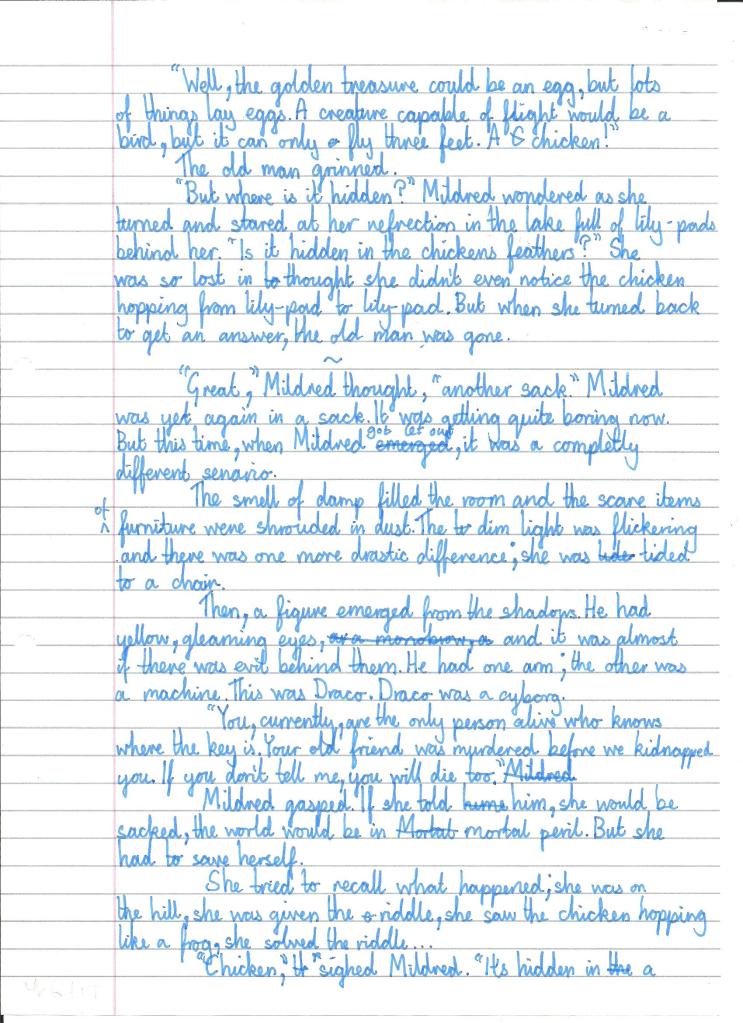 "Well, the golden treasure could be an egg, but lots
of things lay eggs. A creature capable of flight would be a
bird, but it can only fly three feet. A chicken!"
The old man grinned.
"But where is it hidden?" Mildred wondered as she
turned and stared at her refrection in the lake full of lily-pads
behind her. "Is it hidden in the chickens feathers?" She
was so lost in to thought she didn't even notice the chicken
hopping from lily-pad to lily-pad. But when she turned back
to get an answer, the old man was gone.
~
"Great," Mildred thought, "another sack." Mildred
was yet again in a sack. It was getting quite boring now.
But this time, when Mildred emerged got let out, it was a completly
different senario.
The smell of damp filled the room and the scare items
of furniture were shrouded in dust. The to dim light was flickering
and there was one more drastic difference; she was tided
to a chair.
Then, a figure emerged from the shadows. He had
yellow, gleaming eyes, as a monobrow, a and it was almost
if there was evil behind them. He had one arm; the other was
a machine. This was Draco. Draco was a cyborg.
"You, currently, are the only person alive who knows
where the key is. Your old friend was murdered before we kidnapped
you. If you don't tell me, you will die too." Mildred
Mildred gasped. If she told him, she would be
sacked, the world would be in Mortal mortal peril. But she
had to save herself.
She tried to recall what happened; she was on
the hill, she was given the riddle, she saw the chicken hopping
like a frog, she solved the riddle...
"Chicken," sighed Mildred. "It's hidden in the a